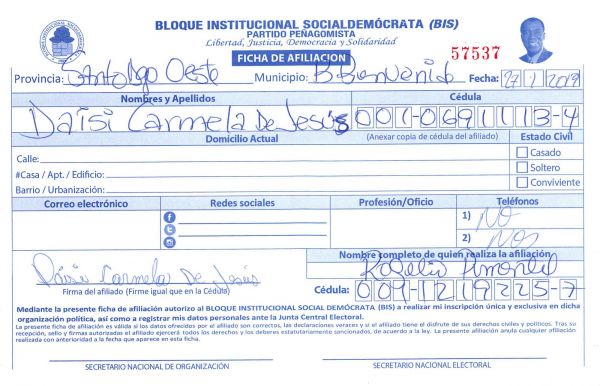 BLOQUE INSTITUCIONAL SOCIALDEMÓCRATA (BIS)
PARTIDO PEÑAGOMISTA
Libertad, Justicia, Democracia y Solidaridad
FICHA DE AFILIACIÓN
57537
Provincia: Santo Dgo Oeste Municipio: B Bienvenido Fecha: 27/1/2019
Nombres y Apellidos Cédula
Daisi Carmela De Jesús 001-0691113-4
Domicilio Actual (Anexar copia de cédula del afiliado) Estado Civil
Calle: Casado
#Casa / Apt. / Edificio: Soltero
Barrio / Urbanización: Conviviente
Correo electrónico Redes sociales Profesión/Oficio Teléfonos
1) NO
2) NO
Nombre completo de quien realiza la afiliación
Daisi Carmela De Jesús Rogelio Pimentel
Firma del afiliado (Firme igual que en la Cédula) Cédula: 001-1219225-7
Mediante la presente ficha de afiliación autorizo al BLOQUE INSTITUCIONAL SOCIAL DEMÓCRATA (BIS) a realizar mi inscripción única y exclusiva en dicha
organización política, así como a registrar mis datos personales ante la Junta Central Electoral.
La presente ficha de afiliación es válida si los datos ofrecidos por el afiliado son correctos, las declaraciones veraces y si el afiliado tiene el disfrute de sus derechos civiles y políticos. Tras su
recepción, sello y firmas autorizadas el afiliado ejercerá todos los derechos y los deberes estatutariamente sancionados, de acuerdo a la ley. La presente afiliación anula cualquier afiliación
realizada con anterioridad a la fecha que aparece en esta ficha.
SECRETARIO NACIONAL DE ORGANIZACIÓN SECRETARIO NACIONAL ELECTORAL